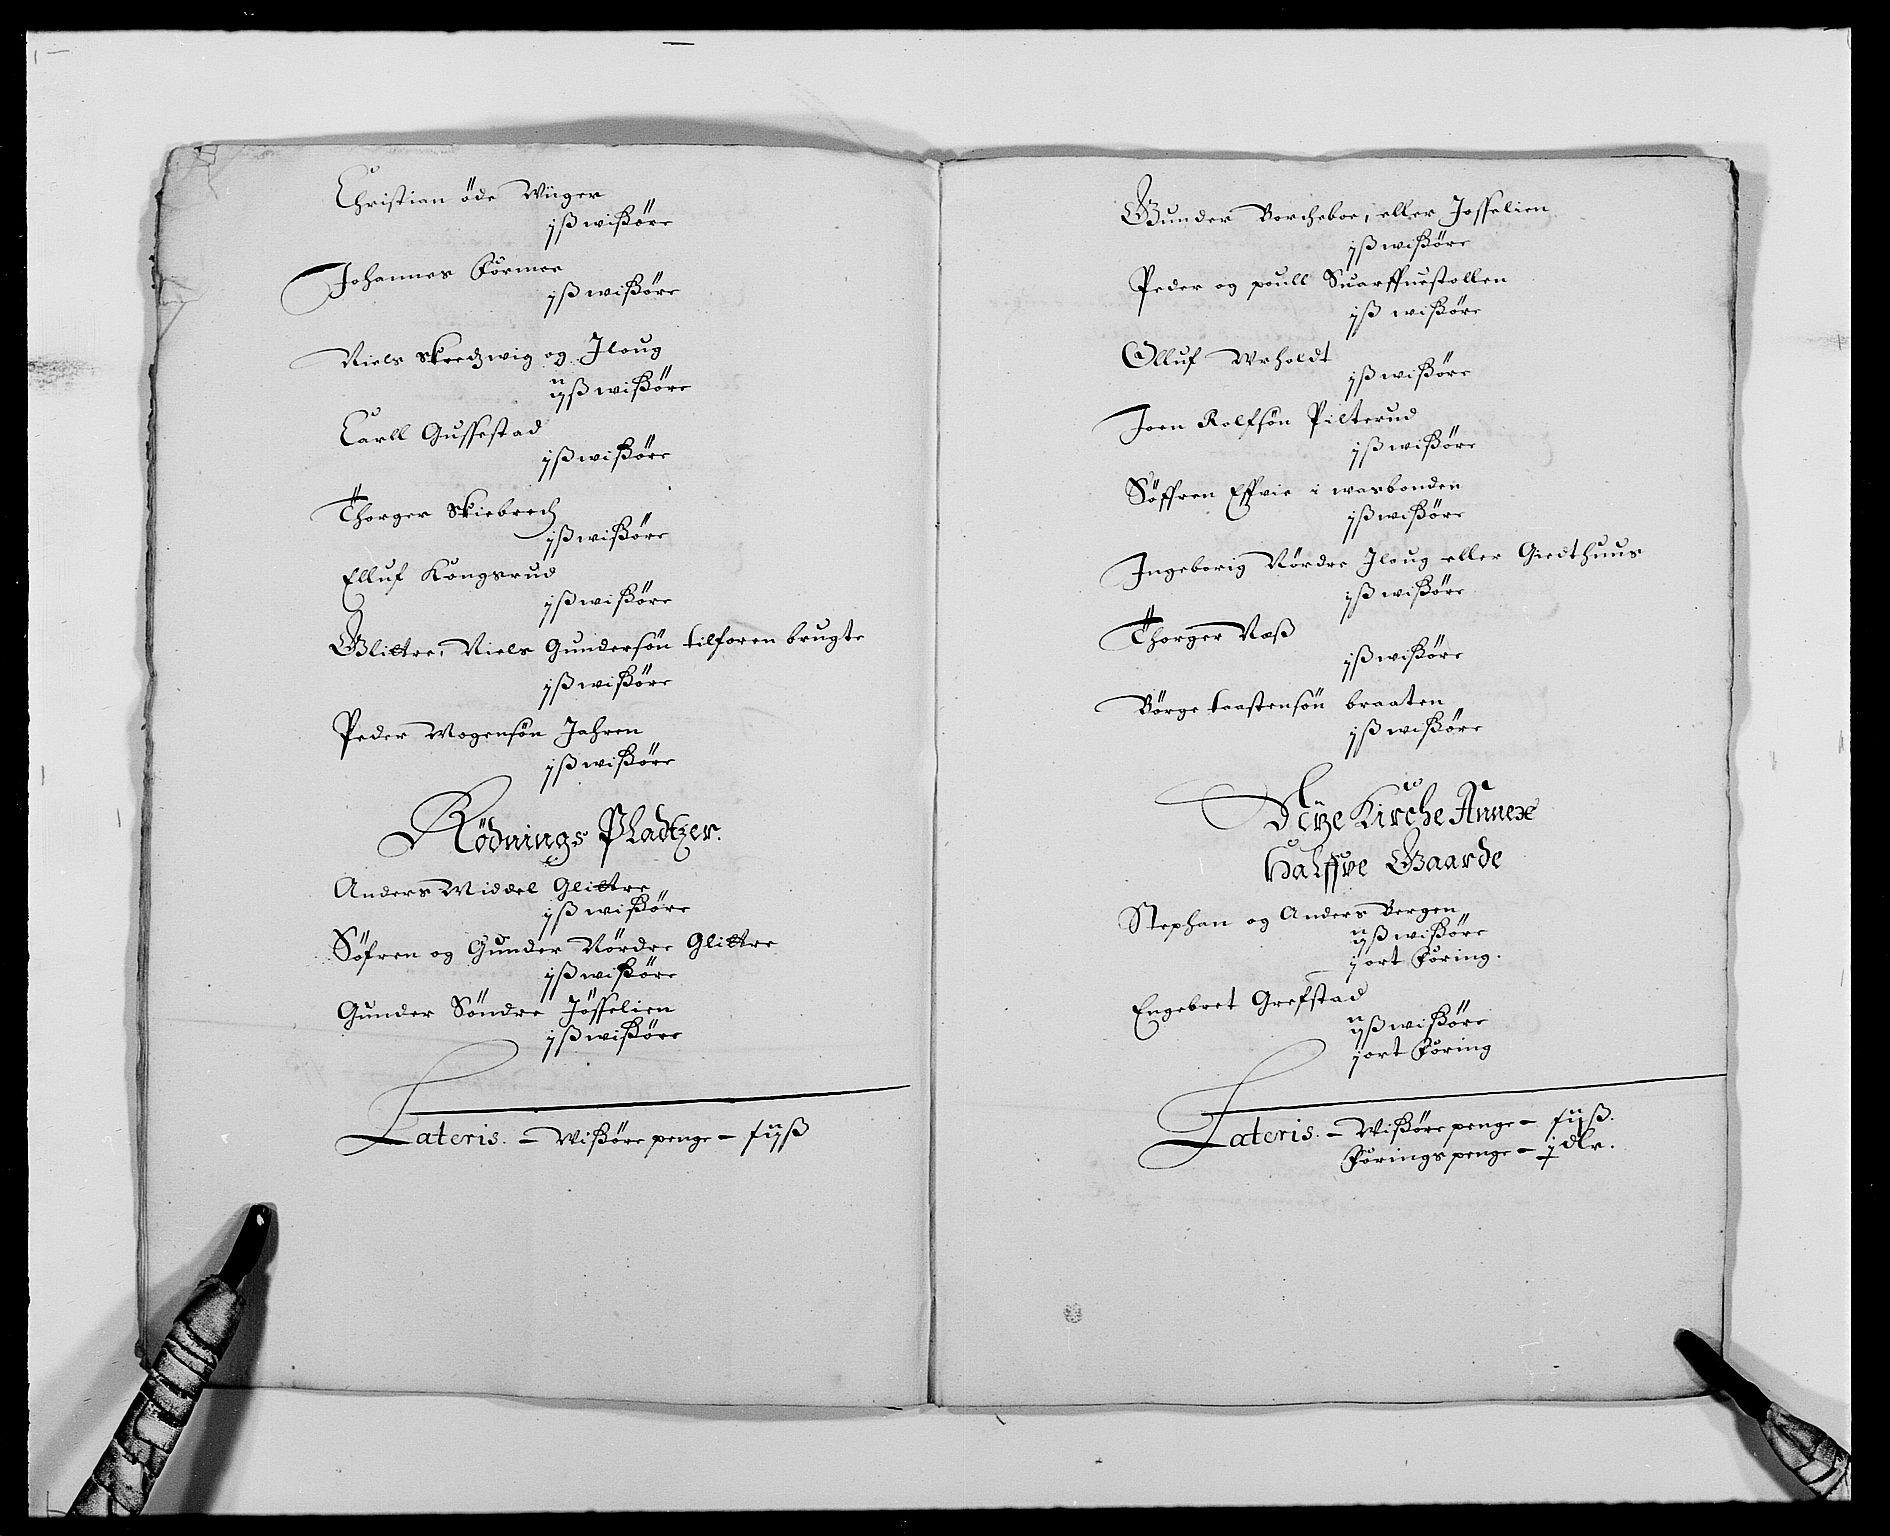 Christian öde Wüger
j ß wißöre
Johannes Körmoe
j ß wißöre
Niels Skredzwig og Iloug
ij ß wißöre
Carll Gussestad
j ß wißöre
Thorger Skiebrech
j ß wißöre
Elluf Kongsrud
j ß wißöre
Glittre, Niels Gundersön tilforen brugte
j ß wißöre
Peder Mogensön Jahren
j ß wißöre
Rödnings Pladtzer.
Anders Middel Glittre
j ß wißöre
Söfren og Gunder Nördre Glittre
j ß wißöre
Gunder Söndre Jösselien
j ß wißöre
Lateris. – Wißöre penge – xij ß
Gunder Borcheboe, eller Josselien
j ß wißöre
Peder og poull Suarffuestollen
j ß wißöre
Olluf Wrholdt
j ß wißöre
Joen Rolfsön Pilterud
j ß wißöre
Söffren Effvie i wasbonden
j ß wißöre
Ingeborig Nördre Iloug eller Giedthuus
j ß wißöre
Thorger Næß
j ß wißöre
Börge taastensön braaten
j ß wißöre
Kirche Annex
Halffve Gaarde
Stephan og Anders Bergen
ij ß wißöre
j ort Föring.
Engebret Grefstad
ij ß wißöre
j ort Föring
Lateris. – Wißöre penge – xij ß.
Förings penge – j dlr.